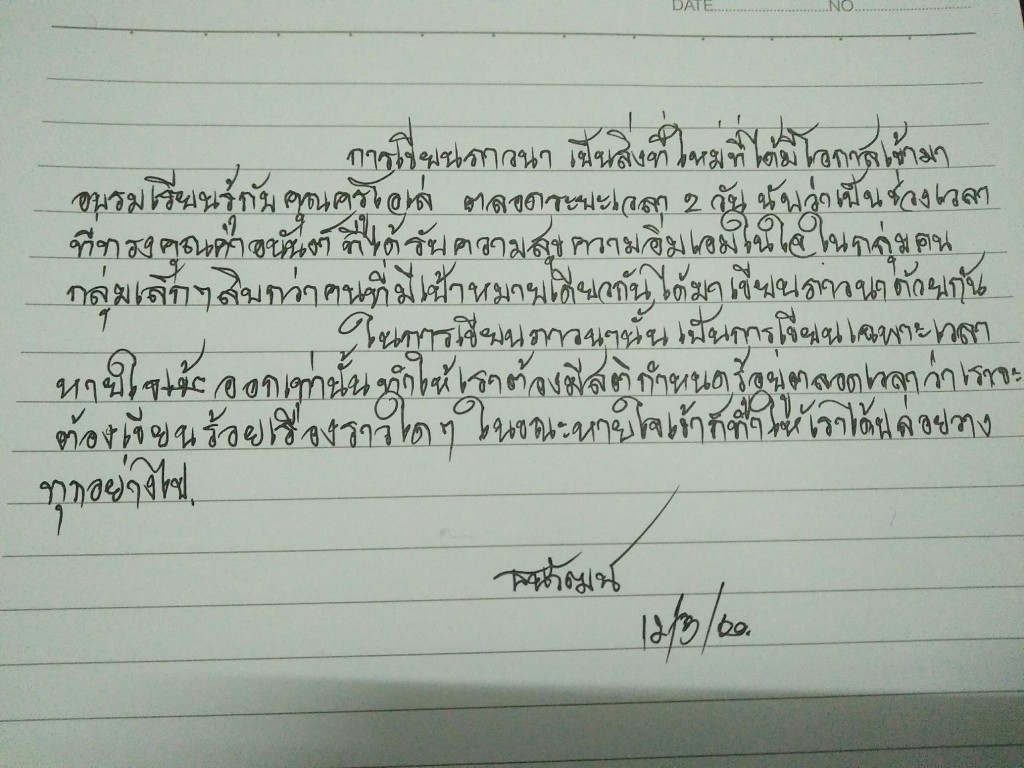 DATE NO
การเขียนภาวนา เป็นสิ่งที่ใหม่ที่ได้มีโอกาสเข้ามา
อบรมเรียนรู้กับคุณครูโอเล่ ตลอดระยะเวลา 2 วัน นับว่าเป็นช่วงเวลา
ที่ทรงคุณค่าอนันต์ ที่ได้รับความสุขความอิ่มเอมในใจในกลุ่มคน
กลุ่มเล็กๆสิบกว่าคนที่มีเป้าหมายเดียวกัน ได้มาเขียนภาวนาด้วยกัน
ในการเขียนภาวนานั้น เป็นการเขียนเฉพาะเวลา
หายใจ ออกเท่านั้น ทำให้เราต้องมีสติกำหนดรู้อยู่ตลอดเวลาว่าเราจะ
ต้องเขียนร้อยเรื่องราวใดๆ ในขณะหายใจเข้าก็ทำให้เราได้ปล่อยวาง
ทุกอย่างไป.
12/3/60.